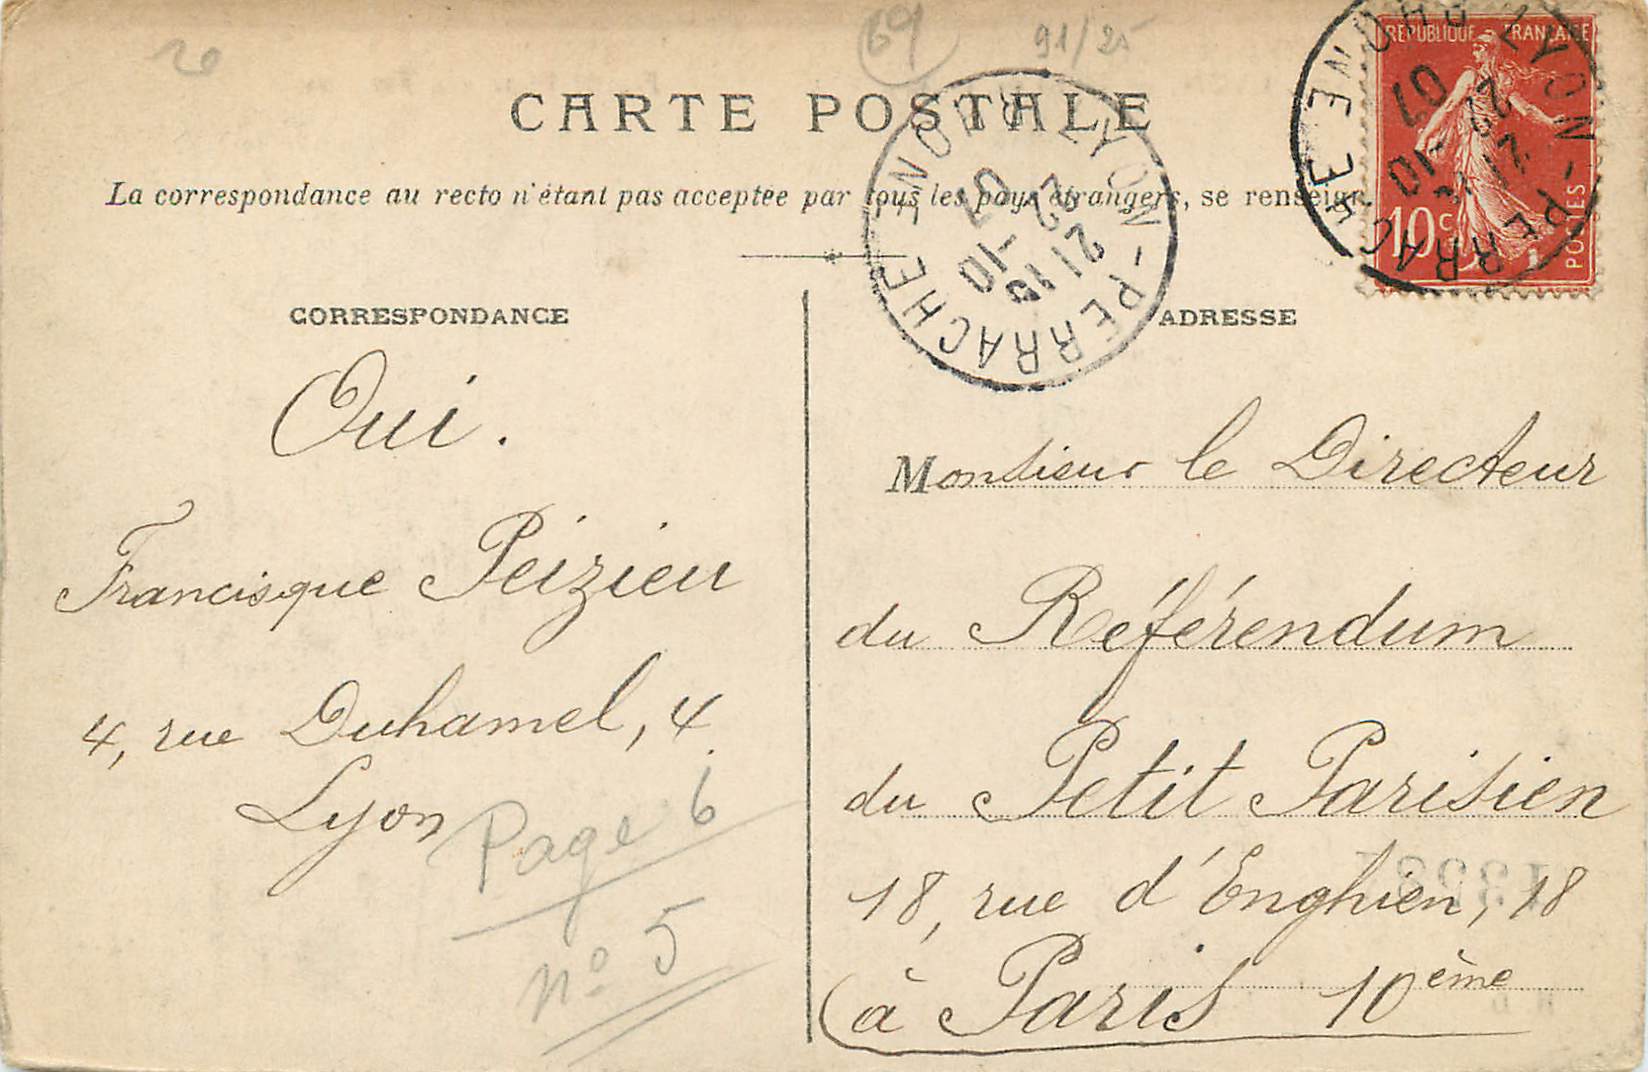 20
69
91/25
CARTE POSTALE
La correspondance au recto n'étant pas acceptée par tous les pays étrangers, se renseign
REPUBLIQUE FRANÇAISE
10 c
POSTES
LYON-PERRACHE RHONE
21 15
22
-10
07
LYON-PERRACHE RHONE
22
-10
07
CORRESPONDANCE
Oui.
Francisque Peizieu
4, rue Duhamel, 4.
Lyon
Page 6
n° 5
ADRESSE
Monsieur le Directeur
du Référendum
du Petit Parisien
18, rue d'Enghien, 18
à Paris 10ème